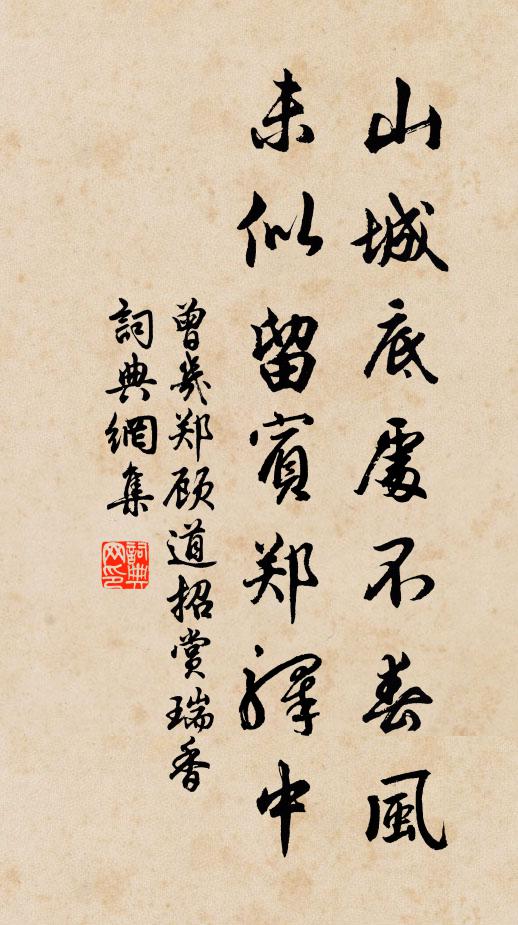 山城底處不春風
未似留賓郑驛中
曾幾郑顾道招赏瑞香
詞典網集
詞典網印